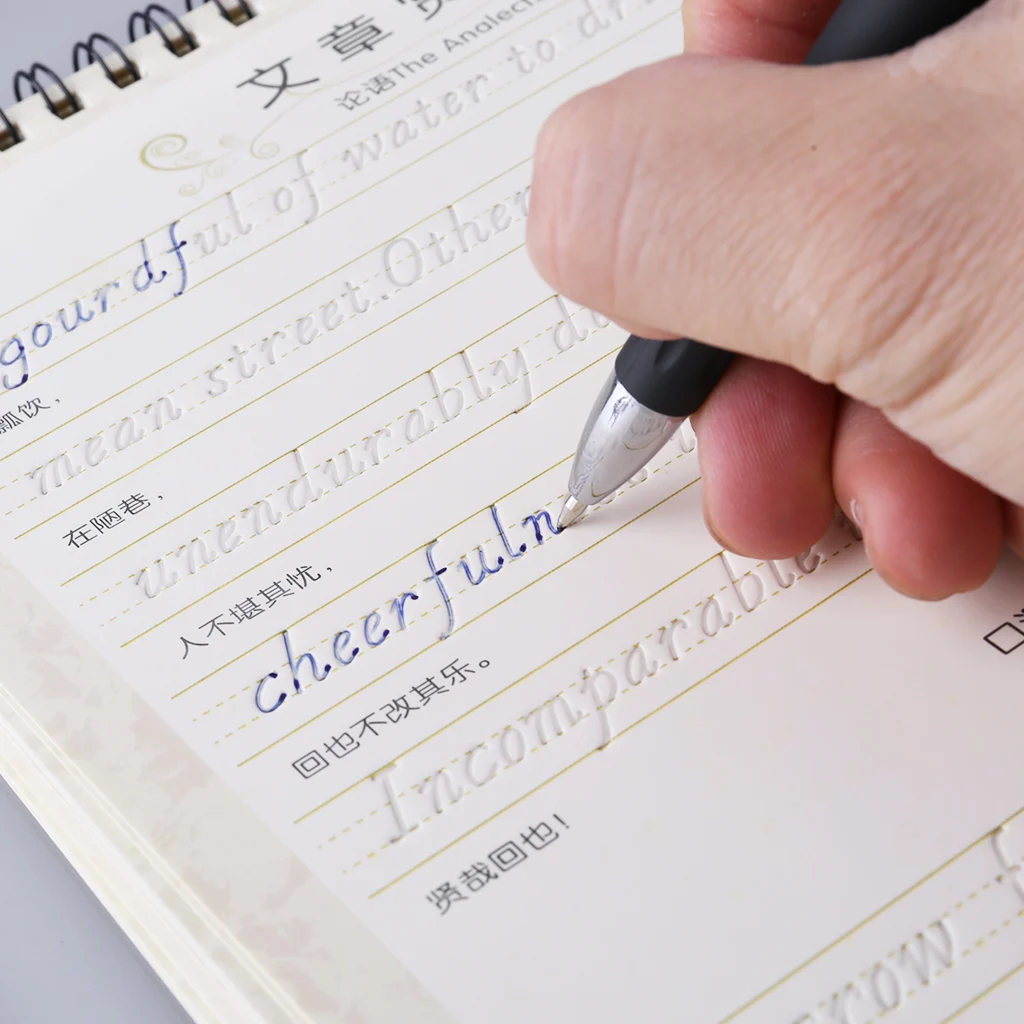 文章
论语The Analects
gourdful of water to
瓢饮，
mean street.Other
在陋巷，
unendurably
人不堪其忧，
cheerfuln
回也不改其乐。
Incomparable
贤哉回也!
row